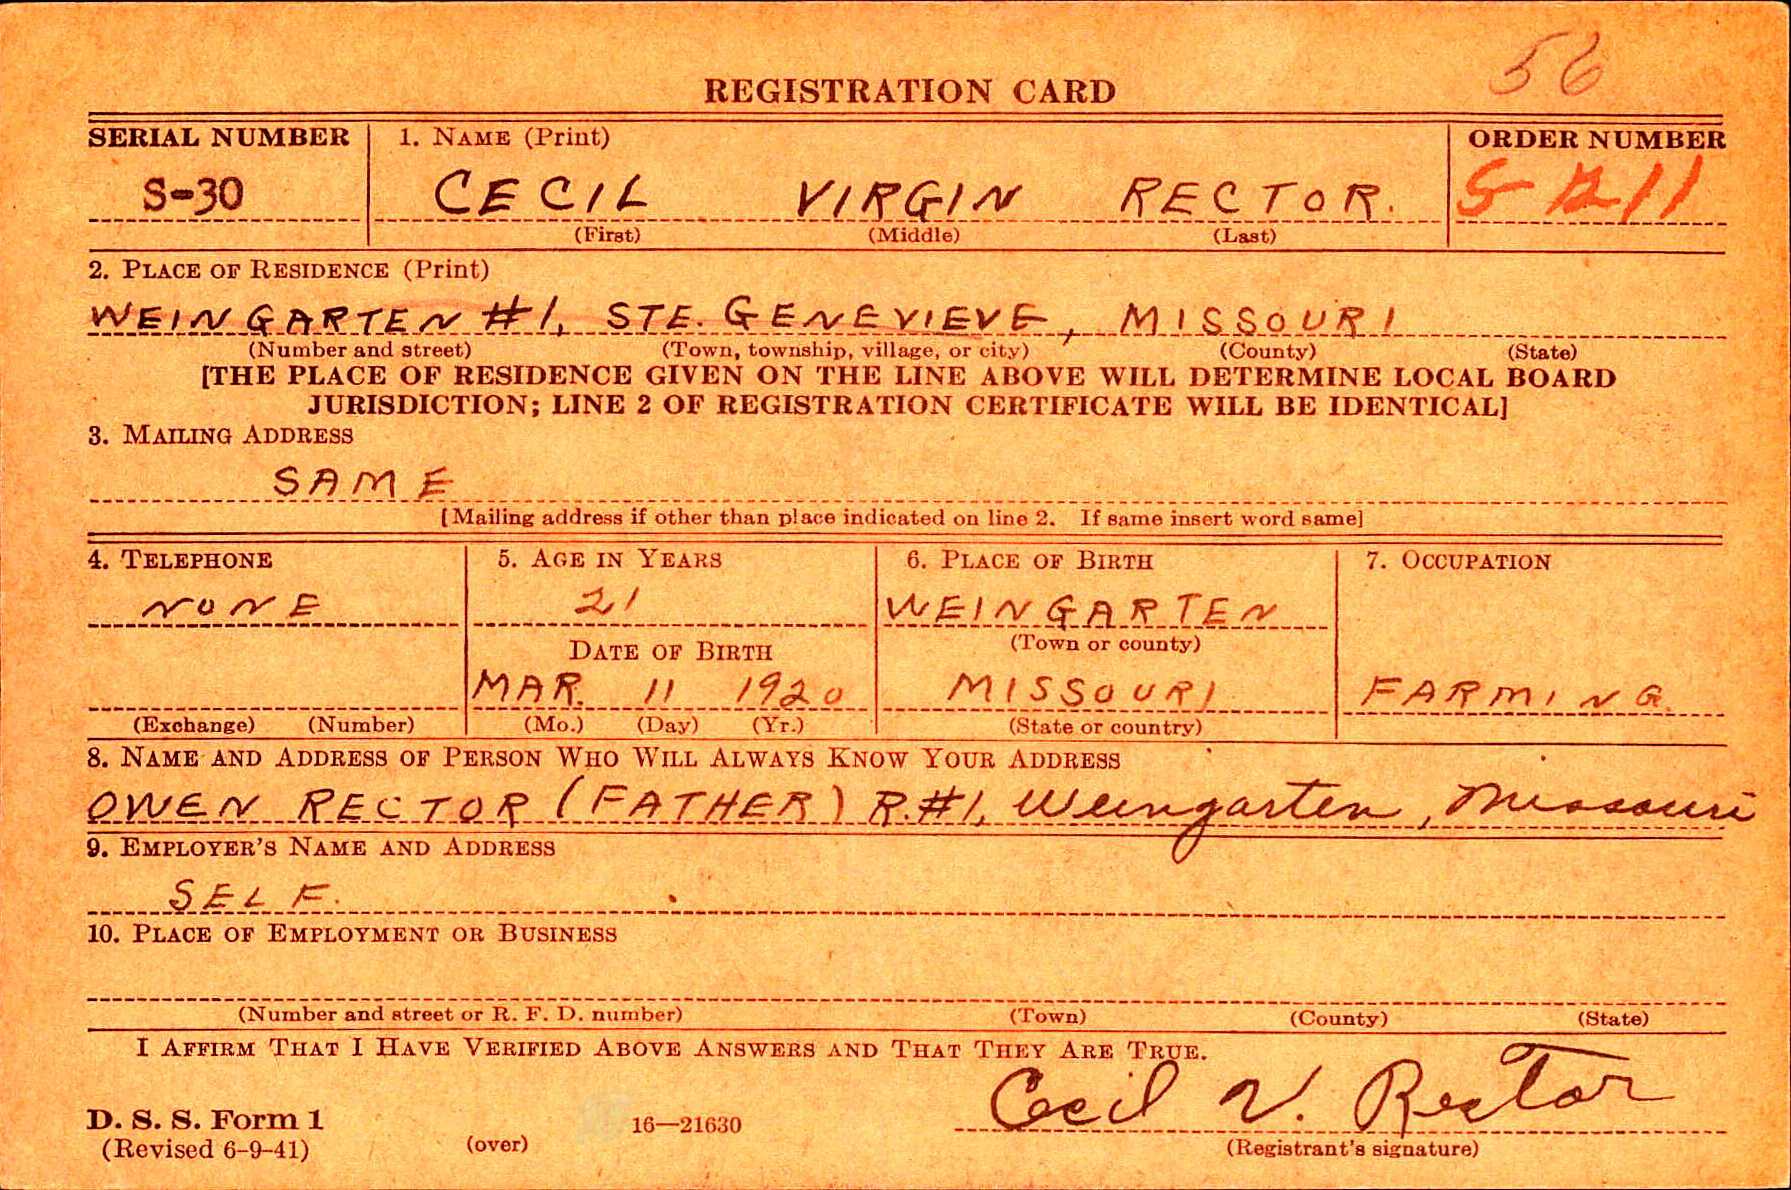 56
REGISTRATION CARD
SERIAL NUMBER 1. NAME (Print) ORDER NUMBER
S-30 CECIL VIRGIN RECTOR. S-1211
(First) (Middle) (Last)
2. PLACE OF RESIDENCE (Print)
WEINGARTEN #1, STE. GENEVIEVE, MISSOURI
(Number and street) (Town, township, village, or city) (County) (State)
[THE PLACE OF RESIDENCE GIVEN ON THE LINE ABOVE WILL DETERMINE LOCAL BOARD
JURISDICTION; LINE 2 OF REGISTRATION CERTIFICATE WILL BE IDENTICAL]
3. MAILING ADDRESS
SAME
[Mailing address if other than place indicated on line 2. If same insert word same]
4. TELEPHONE 5. AGE IN YEARS 6. PLACE OF BIRTH 7. OCCUPATION
NONE 21 WEINGARTEN
DATE OF BIRTH (Town or county)
MAR. 11 1920 MISSOURI FARMING.
(Exchange) (Number) (Mo.) (Day) (Yr.) (State or country)
8. NAME AND ADDRESS OF PERSON WHO WILL ALWAYS KNOW YOUR ADDRESS
OWEN RECTOR (FATHER) R.#1, Weingarten, Missouri
9. EMPLOYER'S NAME AND ADDRESS
SELF.
10. PLACE OF EMPLOYMENT OR BUSINESS
(Number and street or R. F. D. number) (Town) (County) (State)
I AFFIRM THAT I HAVE VERIFIED ABOVE ANSWERS AND THAT THEY ARE TRUE.
Cecil V. Rector
D. S. S. Form 1 16—21630
(Revised 6-9-41) (over) (Registrant's signature)